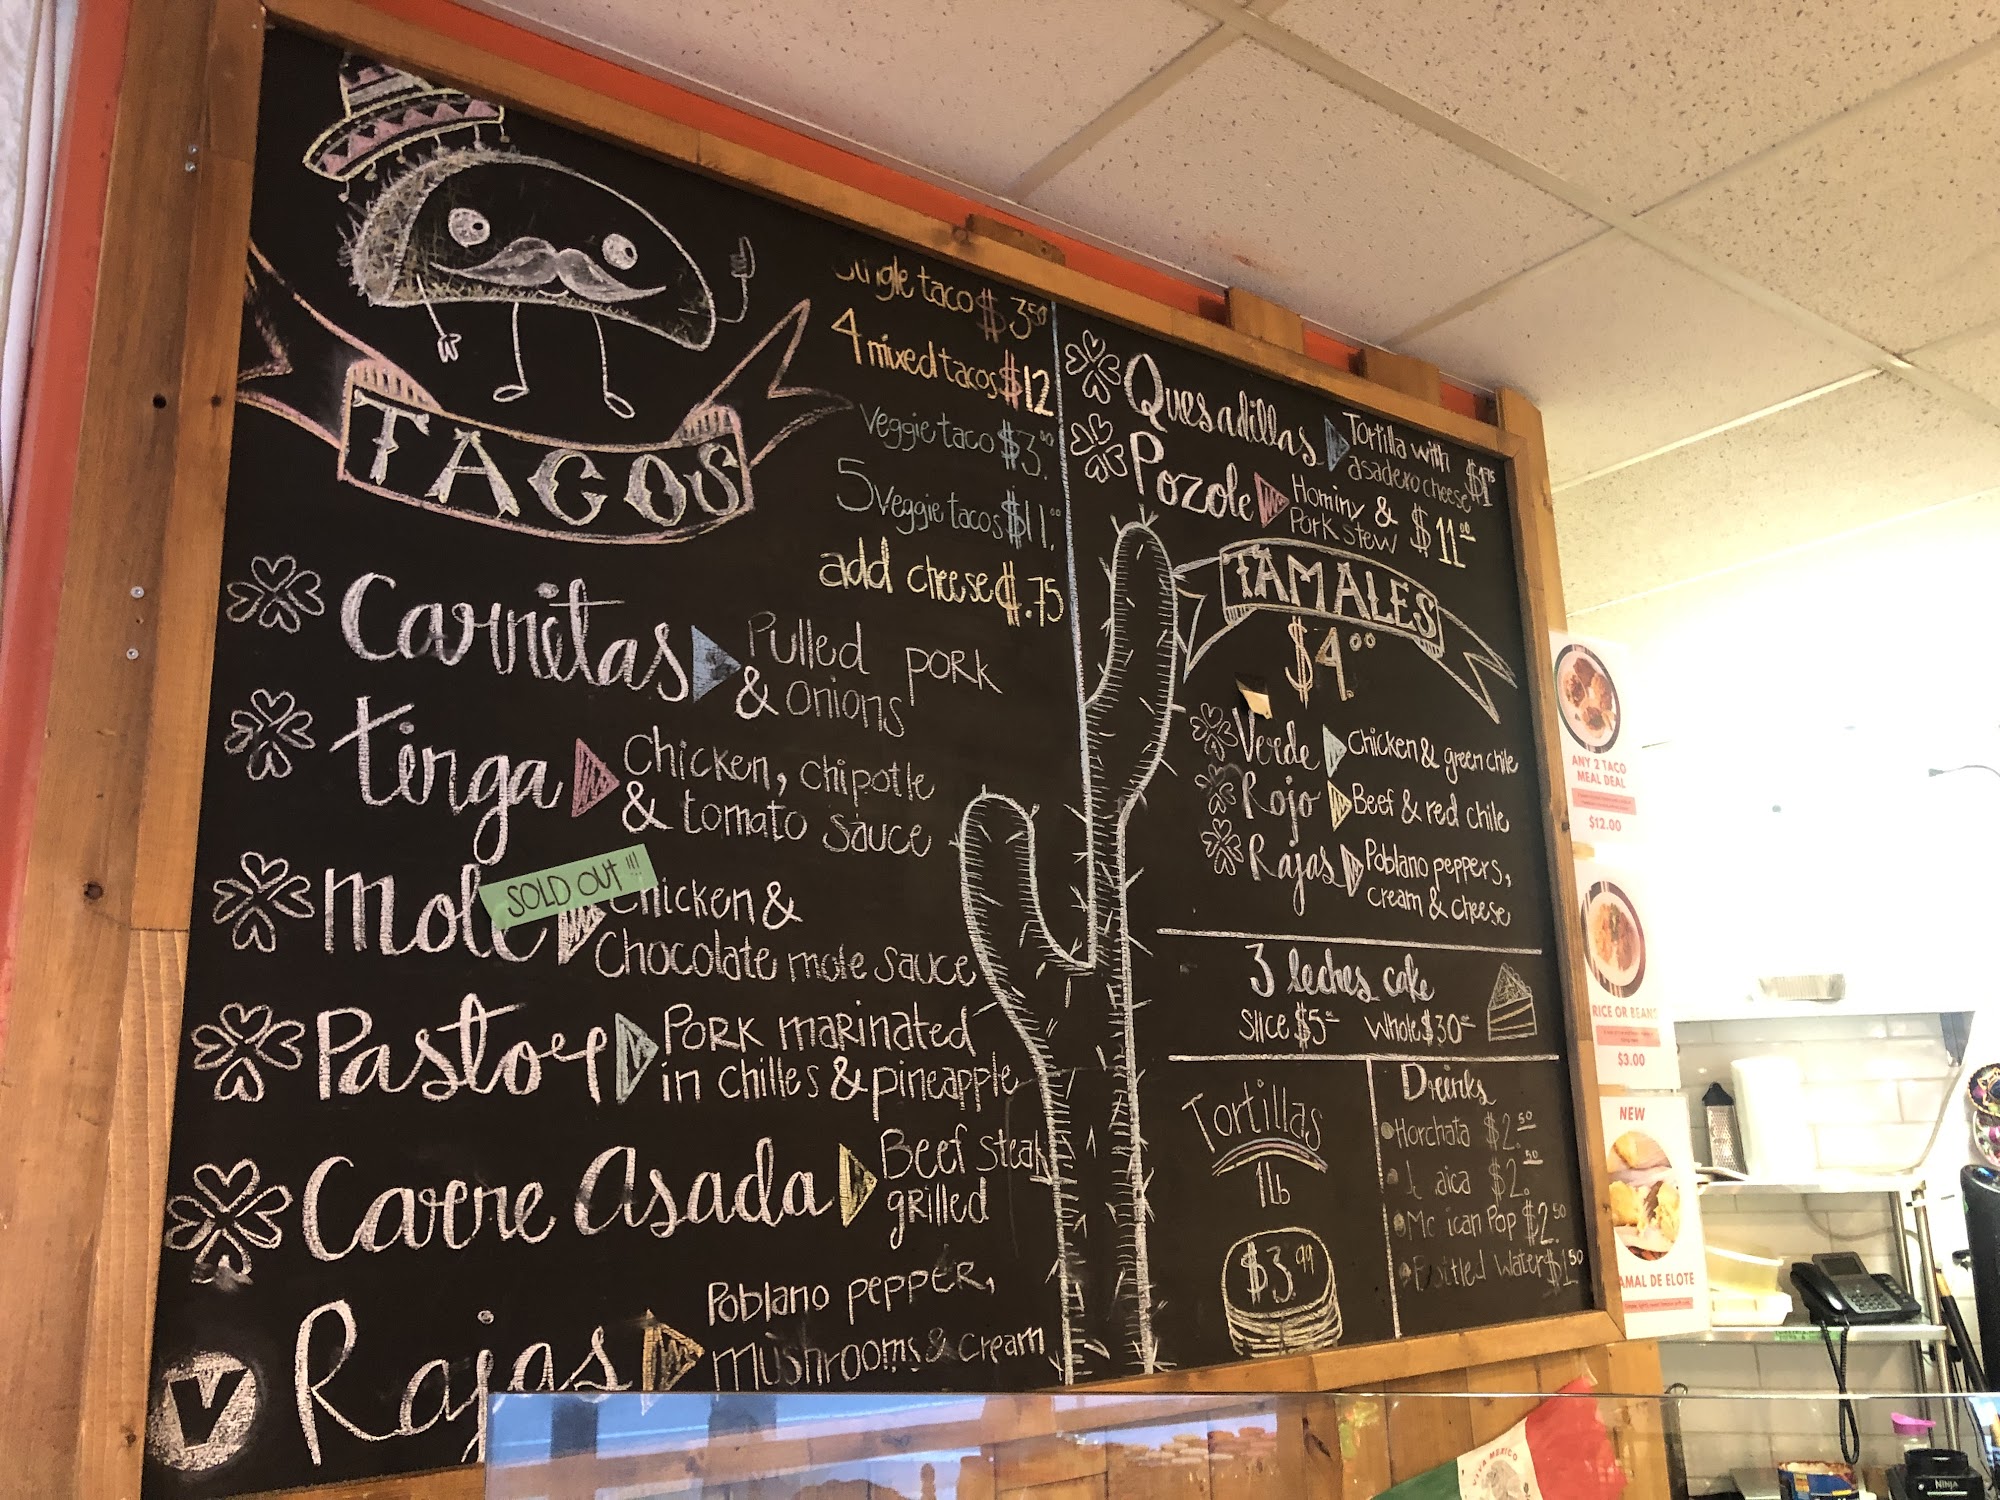 TACOS
Single taco $3.50
4 mixed tacos $12
Veggie taco $3.00
5 Veggie tacos $11.00
add cheese $.75
Carnitas Pulled pork
& onions
Tinga Chicken, chipotle
& tomato sauce
Mole Chicken &
SOLD OUT!!!
Chocolate mole sauce
Pastor Pork marinated
in chiles & pineapple
Carne Asada Beef steak
grilled
V Rajas Poblano pepper,
mushrooms & cream
Quesadillas Tortilla with
asadero cheese
Pozole Hominy &
Pork stew $11.00
TAMALES
$4.00
Verde Chicken & green chile
Rojo Beef & red chile
Rajas Poblano peppers,
cream & cheese
3 leches cake
Slice $5 Whole $30
Tortillas
1Lb
$3.99
Drinks
Horchata $2.50
$2.50
Pop $2.50
Water $1.50
ANY 2 TACO
MEAL DEAL
$12.00
RICE OR BEANS
$3.00
NEW
AMAL DE ELOTE
VIVA MEXICO
NINJA